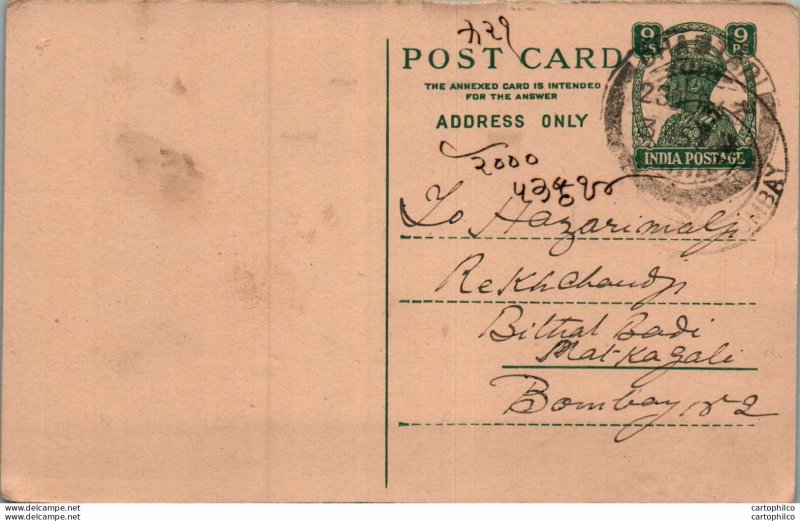 POST CARD
THE ANNEXED CARD IS INTENDED
FOR THE ANSWER
ADDRESS ONLY
9 Ps 9 Ps
INDIA POSTAGE
BOMBAY
2000
To Hazarimalji
Rekhchandji
Bithal Badi
Mat-kagali
Bombay no 2
www.delcampe.net
cartophilco
www.delcampe.net
cartophilco